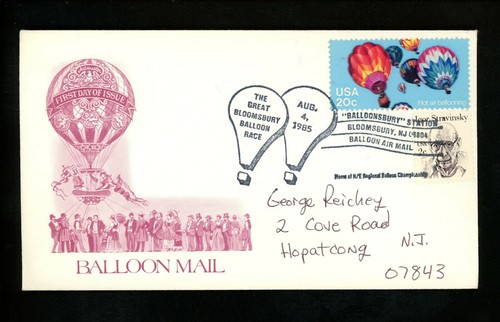 FIRST DAY OF ISSUE
BALLOON MAIL
THE
GREAT
BLOOMSBURY
BALLOON
RACE
AUG.
4,
1985
USA
20c
Hot air ballooning
"BALLOONSBURY" STATION
BLOOMSBURY, NJ 08804
BALLOON AIR MAIL
Home of N/E Regional Balloon Championship
Igor Stravinsky
2c
George Reichey
2 Cove Road
Hopatcong N.J.
07843